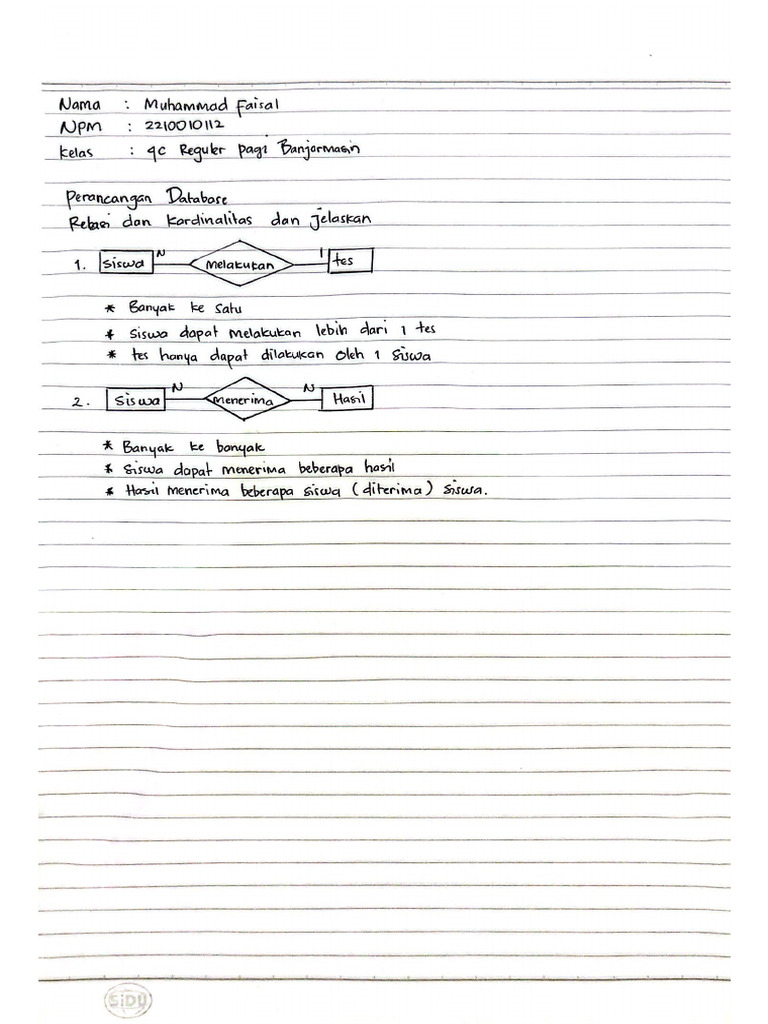 Nama : Muhammad Faisal
NPM : 2210010112
Kelas : 4C Reguler pagi Banjarmasin
Perancangan Database
Relasi dan Kardinalitas dan jelaskan
1. Siswa N Melakukan 1 tes
* Banyak ke satu
* Siswa dapat melakukan lebih dari 1 tes
* tes hanya dapat dilakukan oleh 1 siswa
2. Siswa N Menerima N Hasil
* Banyak ke banyak
* Siswa dapat menerima beberapa hasil
* Hasil menerima beberapa siswa (diterima) siswa.
SiDU